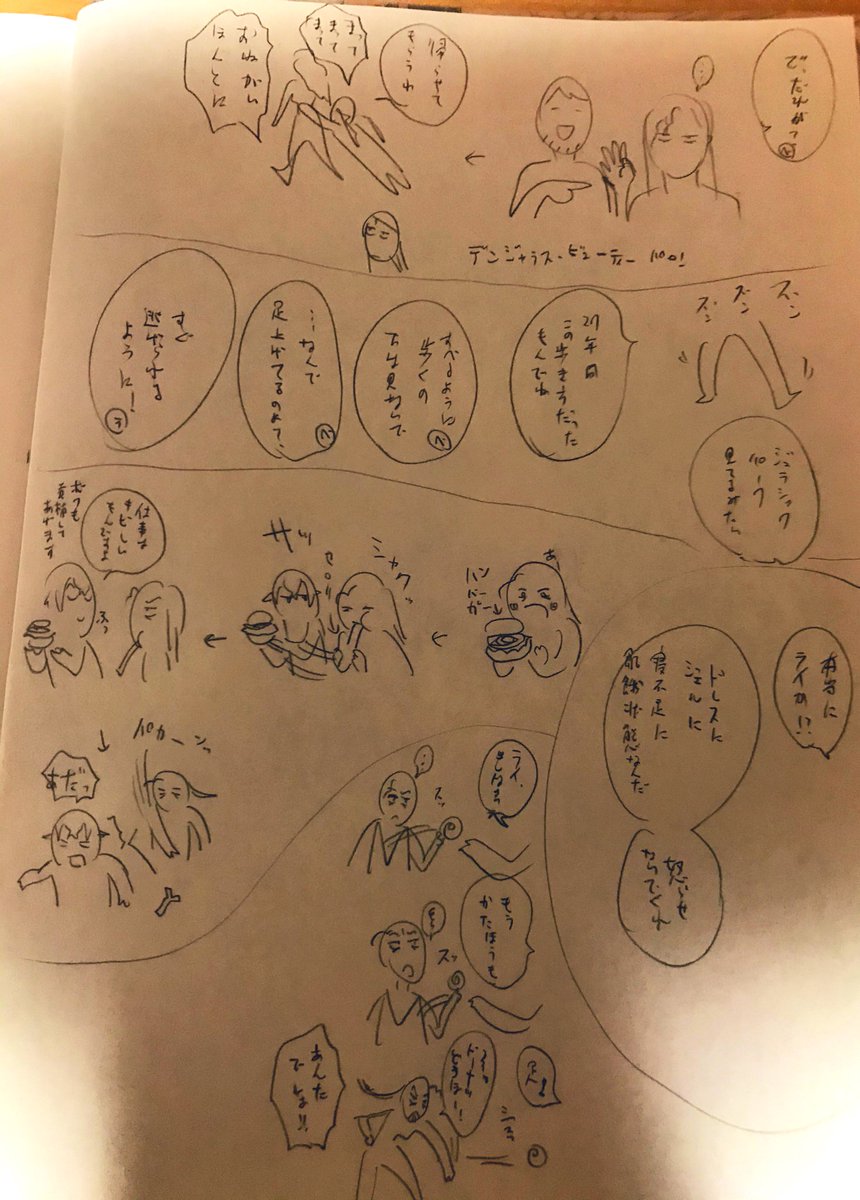 で、だれがて
…
帰らせて
もらうわ
まって
まって
まって
おねがい
ほんとに
デンジャラス・ビューティー パロ!
ズン
ズン
ズン
ジュラシック
パーク
見てるみたい
21年間
この歩き方だった
もんでね
すべるように
歩くの
下は見ないで
…なんで
足上げてるのよて?
すぐ
逃げられる
ように!
あ、
ハン
バーガー
シャクッ
セロリ
サッ
仕事は
きびしい
もんですよ
ふっ
ぼくも
我慢して
あげます
パカーンッ
あだっ
本当に
ライか!?
ドレスに
ジェルに
寝不足に
飢餓状態なんだ
怒らせ
ないでくれ
ライ、
…
スッ
もう
かたほうも
スッ
足も
あんた
でしょ!!